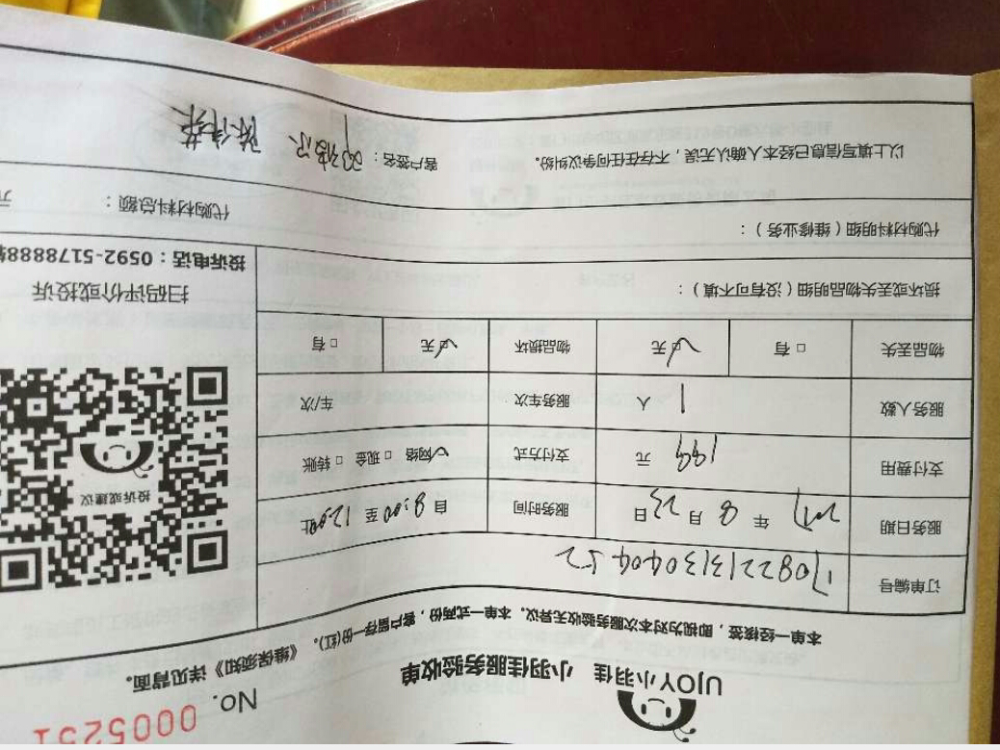 No. 0005251
UJOY小羽佳 小羽佳服务验收单
本单一经核签，即视为对本次服务验收无异议。本单一式两份，客户留存一份(红)。《维保须知》详见背面。
订单编号 170822131304040452
服务日期 2017 年 8 月 23 日 服务时间 自 8:00 至 12:00 止
支付费用 199 元 支付方式 ☑网络 □现金 □转账
服务人数 1 人 服务车次 车/次
物品丢失 □有 ☑无 物品损坏 ☑无 □有
投诉或建议
扫码评价或投诉
投诉电话：0592-5178888转
损坏或丢失物品明细（没有可不填）：
代购材料明细（维修业务）：
代购材料总额： 元
以上填写信息已经本人确认无误，不存在任何争议纠纷。 客户签名：